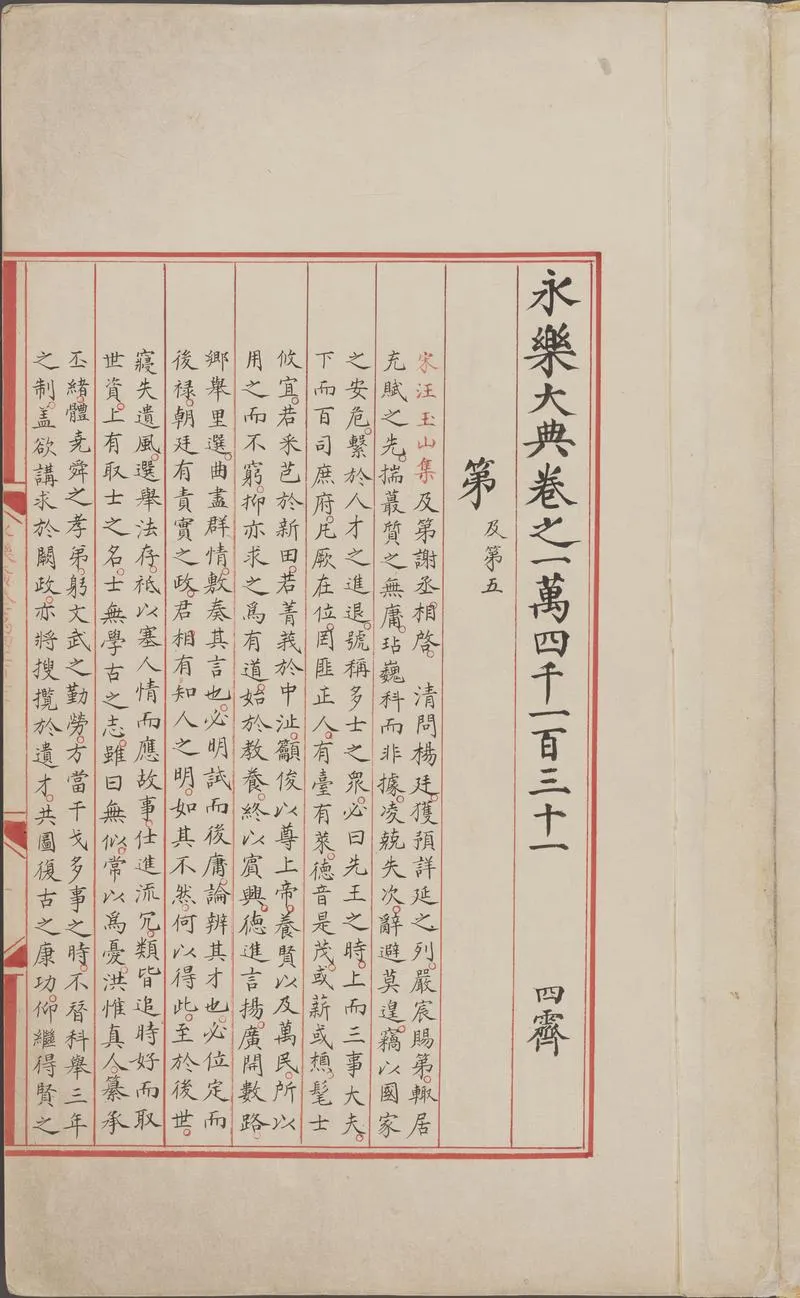 永樂大典卷之一萬四千一百三十一　四霽
第　及第五
宋汪玉山集及第謝丞相啓。　清問楊廷。獲預詳延之列。嚴宸賜第。輙居
充賦之先。揣蕞質之無庸。玷巍科而非據。凌兢失次。辭避莫遑。竊以國家
之安危。繫於人才之進退。號稱多士之衆。必曰先王之時。上而三事大夫。
下而百司庶府。凡厥在位。罔匪正人。有臺有萊。德音是茂。或薪或槱。髦士
攸宜。若采芑於新田。若菁莪於中沚。籲俊以尊上帝。養賢以及萬民。所以
用之而不窮。抑亦求之為有道。始於教養。終以賓興。德進言揚。廣開數路。
鄉舉里選。曲盡群情。敷奏其言也。必明試而後庸。論辨其才也。必位定而
後祿。朝廷有責實之政。君相有知人之明。如其不然。何以得此。至於後世。
寢失遺風。選舉法存。祗以塞人情而應故事。仕進流冗。類皆追時好而取
世資。上有取士之名。士無學古之志。雖曰無似。常以為憂。洪惟真人。纂承
丕緒。體堯舜之孝弟。躬文武之勤勞。方當干戈多事之時。不替科舉三年
之制。盖欲講求於闕政。亦將搜攬於遺才。共圖復古之康功。仰繼得賢之